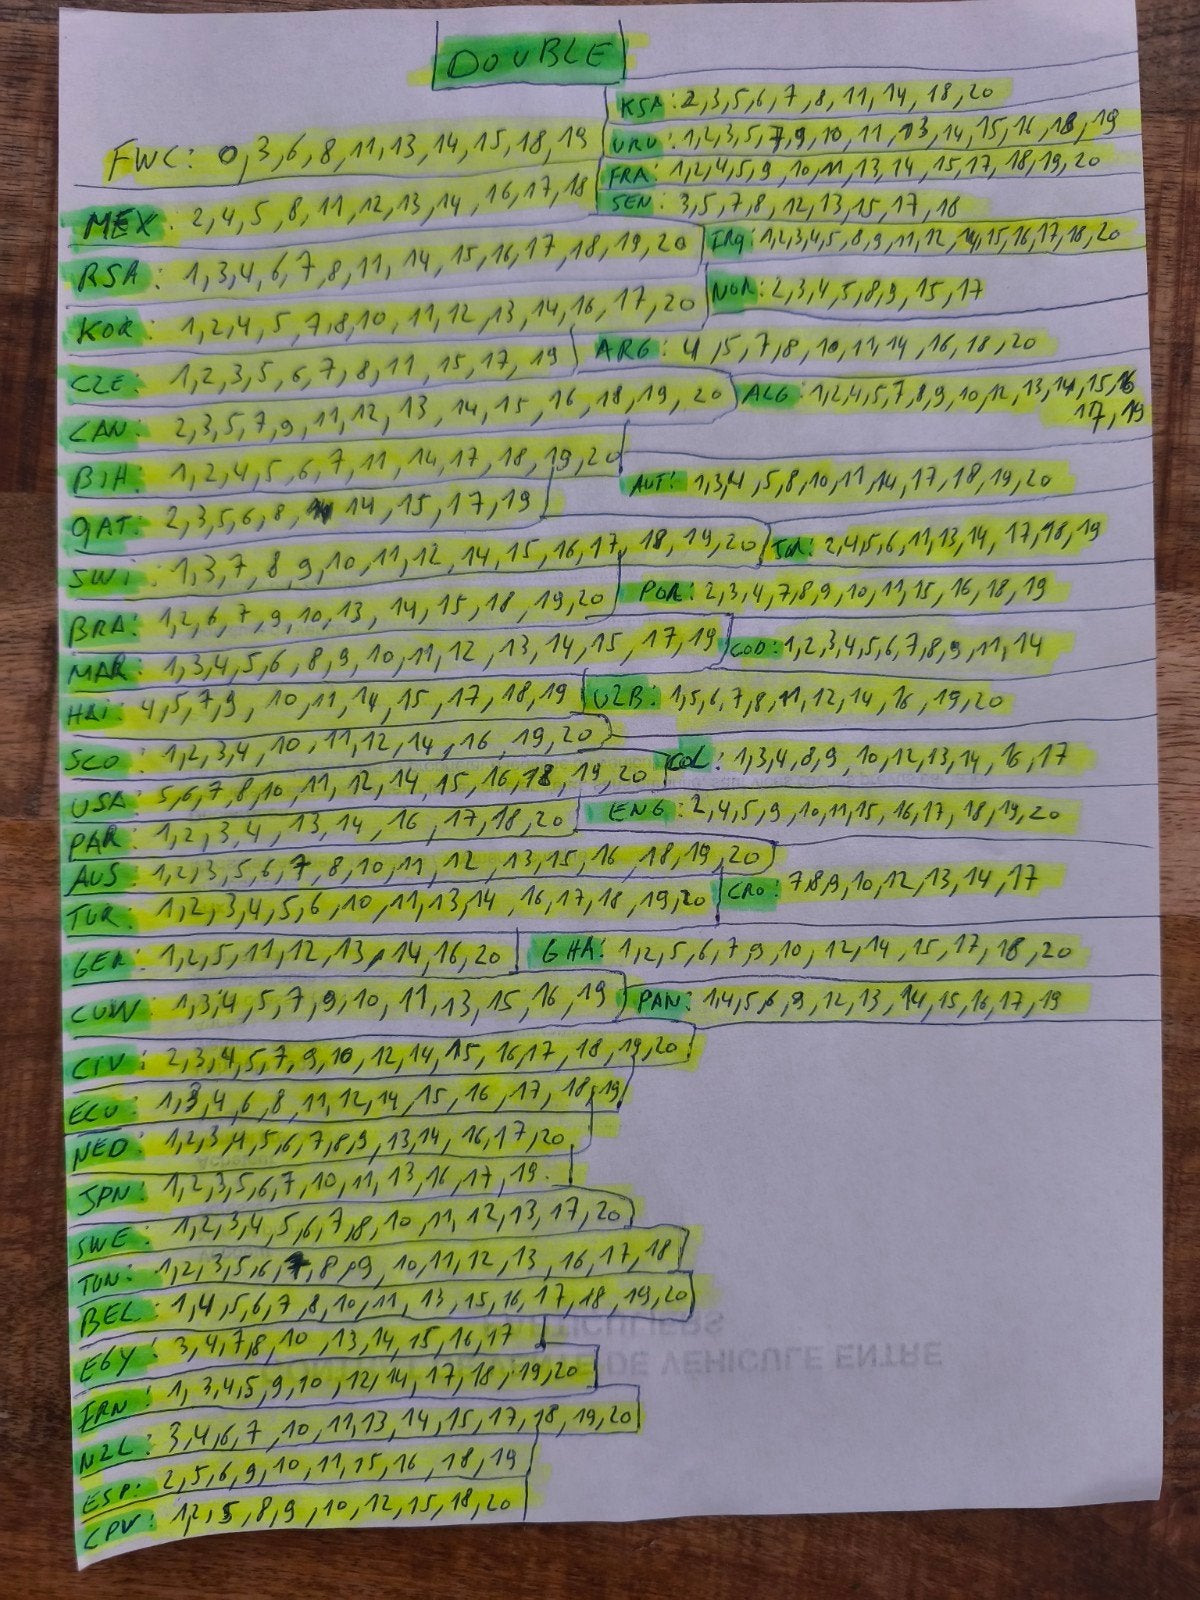 DOUBLE
FWC: 0,3,6,8,11,13,14,15,18,19
MEX: 2,4,5,8,11,12,13,14,16,17,18
RSA: 1,3,4,6,7,8,11,14,15,16,17,18,19,20
KOR: 1,2,4,5,7,8,10,11,12,13,14,16,17,20
CZE: 1,2,3,5,6,7,8,11,15,17,19
CAN: 2,3,5,7,9,11,12,13,14,15,16,18,19,20
BIH: 1,2,4,5,6,7,11,14,17,18,19,20
QAT: 2,3,5,6,8,14,15,17,19
SWi: 1,3,7,8,9,10,11,12,14,15,16,17,18,19,20
BRA: 1,2,6,7,9,10,13,14,15,18,19,20
MAR: 1,3,4,5,6,8,9,10,11,12,13,14,15,17,19
HAi: 4,5,7,9,10,11,14,15,17,18,19
SCO: 1,2,3,4,10,11,12,14,16,19,20
USA: 5,6,7,8,10,11,12,14,15,16,18,19,20
PAR: 1,2,3,4,13,14,16,17,18,20
AUS: 1,2,3,5,6,7,8,10,11,12,13,15,16,18,19,20
TUR: 1,2,3,4,5,6,10,11,13,14,16,17,18,19,20
GER: 1,2,5,11,12,13,14,16,20
CUW: 1,3,4,5,7,9,10,11,13,15,16,19
CIV: 2,3,4,5,7,9,10,12,14,15,16,17,18,19,20
ECU: 1,3,4,6,8,11,12,14,15,16,17,18,19
NED: 1,2,3,4,5,6,7,8,9,13,14,16,17,20
JPN: 1,2,3,5,6,7,10,11,13,16,17,19.
SWE: 1,2,3,4,5,6,7,8,10,11,12,13,17,20
TUN: 1,2,3,5,6,7,8,9,10,11,12,13,16,17,18
BEL: 1,4,5,6,7,8,10,11,13,15,16,17,18,19,20
EGY: 3,4,7,8,10,13,14,15,16,17
IRN: 1,3,4,5,9,10,12,14,17,18,19,20
NZL: 3,4,6,7,10,11,13,14,15,17,18,19,20
ESP: 2,5,6,9,10,11,15,16,18,19
CPV: 1,2,5,8,9,10,12,15,18,20
KSA: 2,3,5,6,7,8,11,14,18,20
URU: 1,2,3,5,7,9,10,11,13,14,15,16,18,19
FRA: 1,2,4,5,9,10,11,13,14,15,17,18,19,20
SEN: 3,5,7,8,12,13,15,17,18
IRQ: 1,2,3,4,5,8,9,11,12,14,15,16,17,18,20
NOR: 2,3,4,5,8,9,15,17
ARG: 4,5,7,8,10,11,14,16,18,20
ALG: 1,2,4,5,7,8,9,10,12,13,14,15,16
17,19
AUT: 1,3,4,5,8,10,11,14,17,18,19,20
JOR: 2,4,5,6,11,13,14,17,18,19
POR: 2,3,4,7,8,9,10,11,15,16,18,19
COD: 1,2,3,4,5,6,7,8,9,11,14
UZB: 1,5,6,7,8,11,12,14,16,19,20
COL: 1,3,4,8,9,10,12,13,14,16,17
ENG: 2,4,5,9,10,11,15,16,17,18,19,20
CRO: 7,8,9,10,12,13,14,17
GHA: 1,2,5,6,7,9,10,12,14,15,17,18,20
PAN: 1,4,5,6,9,12,13,14,15,16,17,19